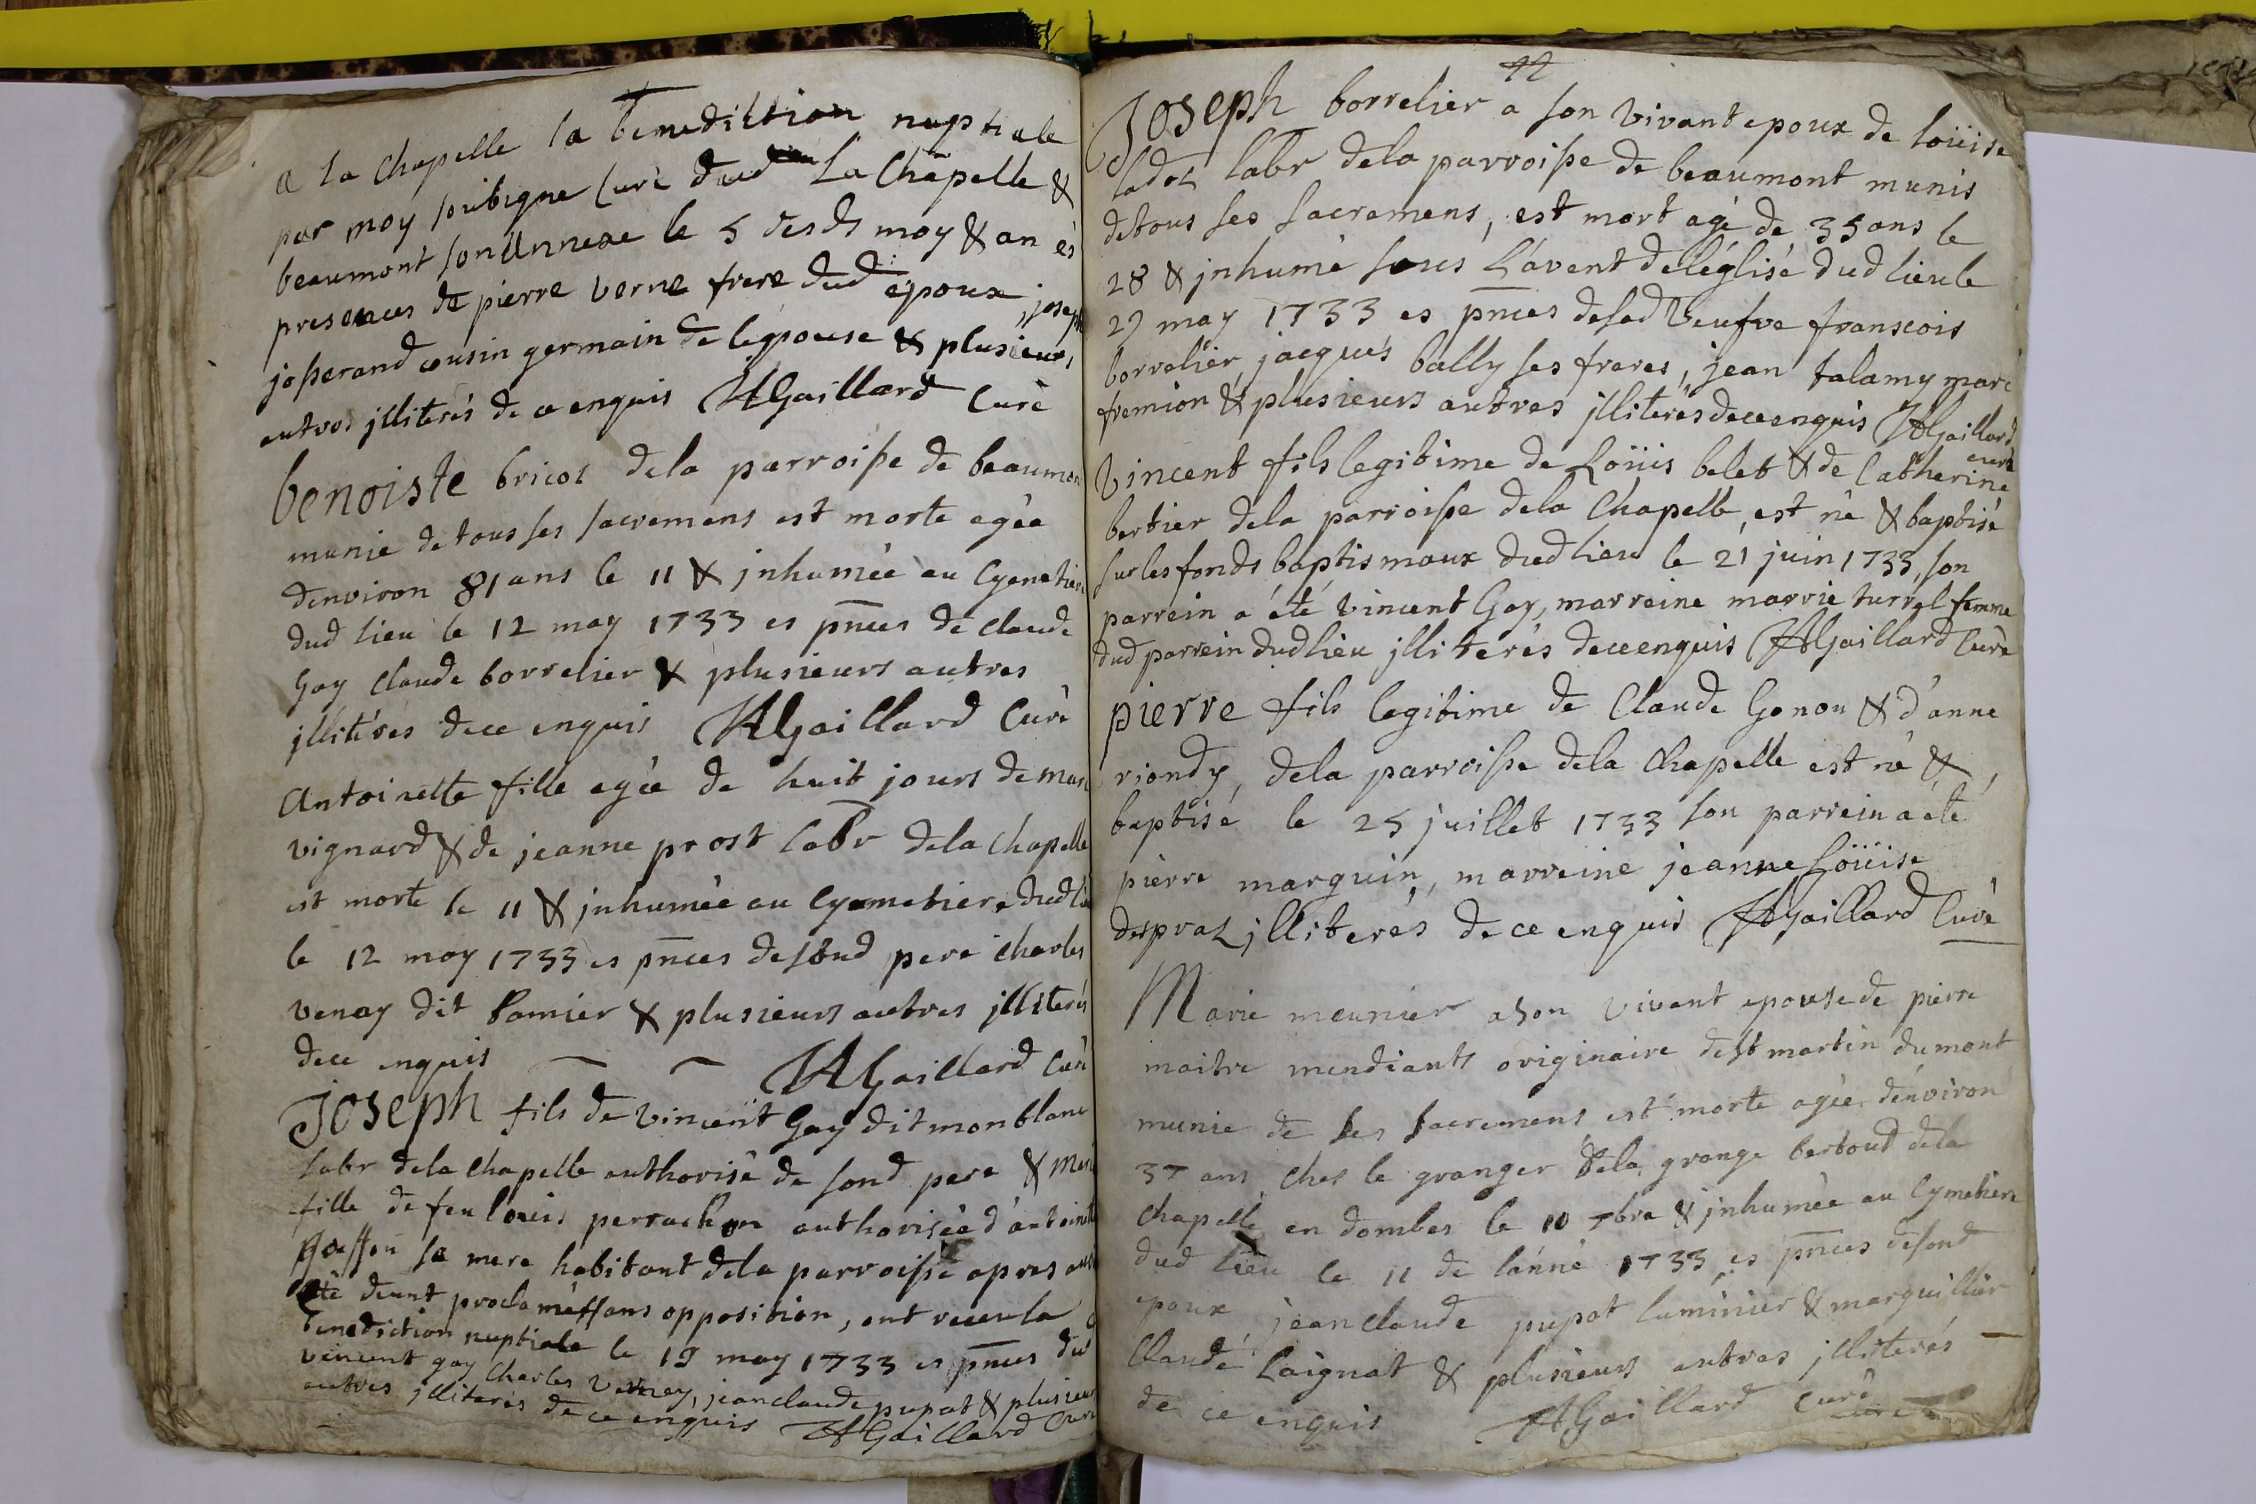 a la chapelle la benediction nuptiale
par moy soubsigne curé dud La Chapelle &
beaumont son Annexe le 5 desds moy & an ès
presences de pierre verne frere dud epoux, joseph
josserand cousin germain de l'epouse & plusieurs
autres jlliterés de ce enquis AGaillard Curé
benoiste bricol de la parroisse de beaumon
munie de tous ses sacremens est morte agée
denviron 81 ans le 11 & jnhumée au Cymetiere
dud lieu le 12 may 1733 es pnces de claude
Gay claude borrelier & plusieurs autres
jlliterés de ce enquis AGaillard Curé
Antoinette fille agée de huit jours de
vignard & de jeanne prost labr de la chapelle
est morte le 11 & jnhumée au Cymetiere dud lieu
le 12 may 1733 es pnces de sond pere charles
venay dit & plusieurs autres jlliterés
de ce enquis AGaillard Curé
Joseph fils de vincent Gay dit monblanc
labr de la chapelle authorisé de sond pere &
fille de feu louis perrachon authorisée d'antoinette
sa mere habitant de la parroisse apres avoir
été deunt proclamés sans opposition, ont receu la
benediction nuptiale le 19 may 1733 es pnces dud
vincent gay Charles vernay, jean claude pupat & plusieurs
autres jlliterés de ce enquis AGaillard Curé
12
Joseph borrelier a son vivant epoux de loüise
ladol labr de la parroisse de beaumont munis
de tous ses sacremens, est mort agé de 35 ans le
28 & jnhumé sous l'avent de l'églisé dud lieu le
29 may 1733 es pnces de sad veufve franscois
borrelier, jacques bally ses freres, jean talamy marc
fremion & plusieurs autres jlliterés de ce enquis AGaillard
curé
Vincent fils legitime de Loüis belet & de Catherine
bertier de la parroisse de la Chapelle, est né & baptisé
sur les fonds baptismaux dud lieu le 21 juin 1733, son
parrein a été vincent Gay, marreine marrie turrel femme
dud parrein dud lieu jlliterés de ce enquis AGaillard Curé
pierre fils legitime de Claude Gonon & d'anne
riondy, de la parroisse de la chapelle est né &
baptisé le 25 juillet 1733 son parrein a été
pierre marguin, marreine jeanne Loüise
despraz jlliterés de ce enquis AGaillard Curé
Marie meunier a son vivant epouse de pierre
maitre mendiants originaire de st martin du mont
munie de ses sacremens est morte agée d'environ
37 ans ches le granger de la grange bertoud de la
chapelle en dombes le 10 7bre & jnhumée au Cymetiere
dud lieu le 11 de l'anné 1733 es pnces de sond
epoux jean claude pupat luminier & marguillier
Claude Laignat & plusieurs autres jlliterés
de ce enquis AGaillard Curé